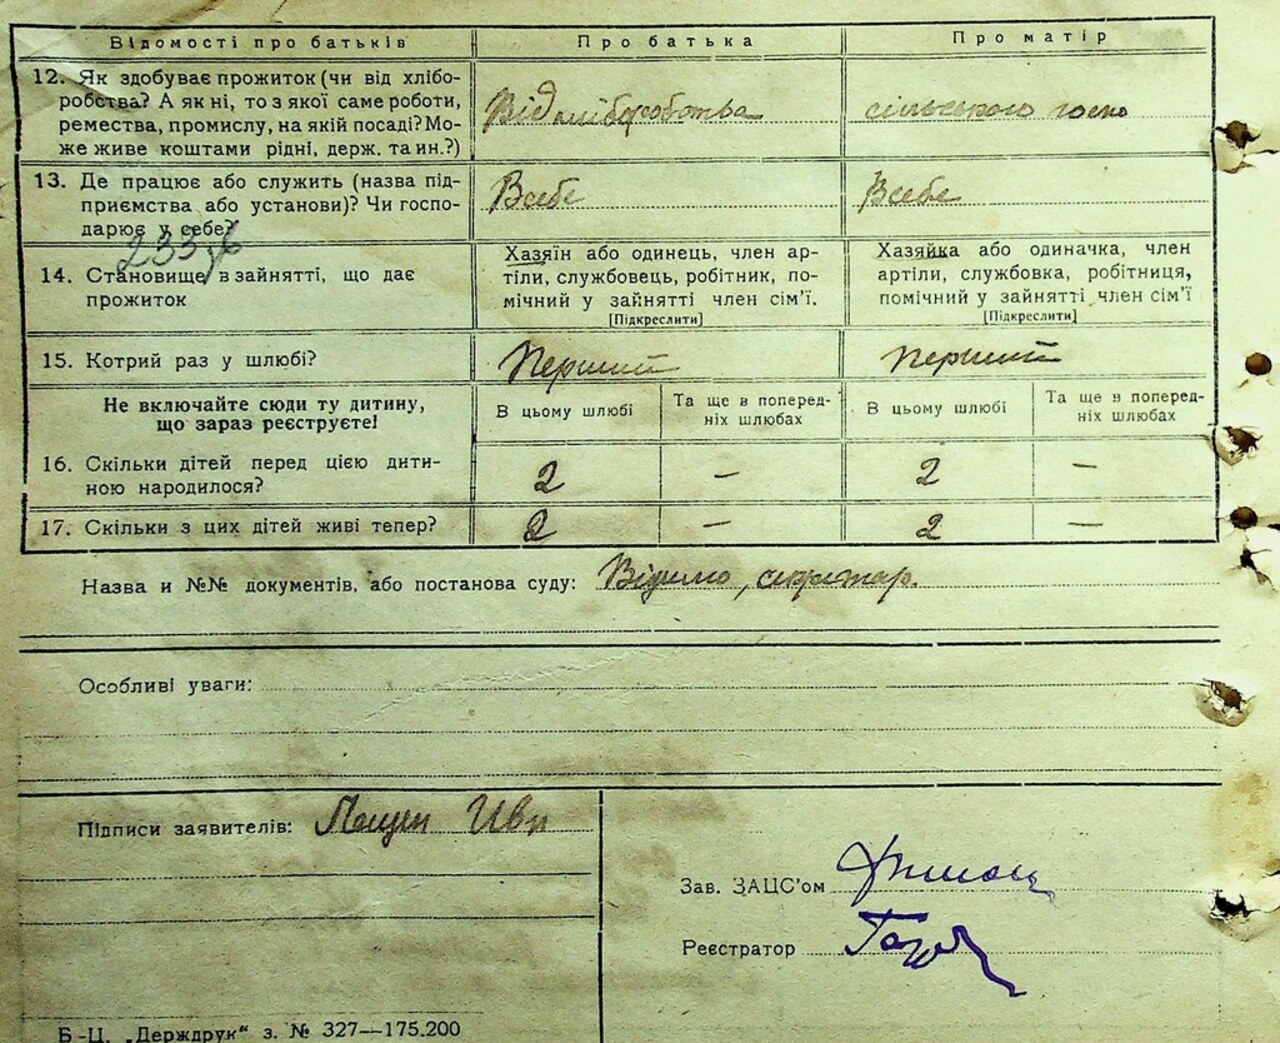 Відомості про батьків Про батька Про матір
12. Як здобуває прожиток (чи від хлібо-
робства? А як ні, то з якої саме роботи,
ремества, промислу, на якій посаді? Мо-
же живе коштами рідні, держ. та ин.?)
Від хліборобства
сільського госпо
13. Де працює або служить (назва під-
приємства або установи)? Чи госпо-
дарює у себе?
В себе
В себе
14. Становище в зайнятті, що дає
прожиток
Хазяїн або одинець, член ар-
тіли, службовець, робітник, по-
мічний у зайнятті член сім'ї.
[Підкреслити]
Хазяйка або одиначка, член
артіли, службовка, робітниця,
помічний у зайнятті член сім'ї
[Підкреслити]
15. Котрий раз у шлюбі?
Перший
Перший
Не включайте сюди ту дитину,
що зараз реєструєте!
В цьому шлюбі
Та ще в поперед-
ніх шлюбах
В цьому шлюбі
Та ще в поперед-
ніх шлюбах
16. Скільки дітей перед цією дити-
ною народилося?
2 — 2 —
17. Скільки з цих дітей живі тепер?
2 — 2 —
Назва и №№ документів, або постанова суду: Відимо, секретар.
Особливі уваги:
Підписи заявителів:
Зав. ЗАЦС'ом
Реєстратор
Б-Ц. „Держдрук“ з. № 327—175.200